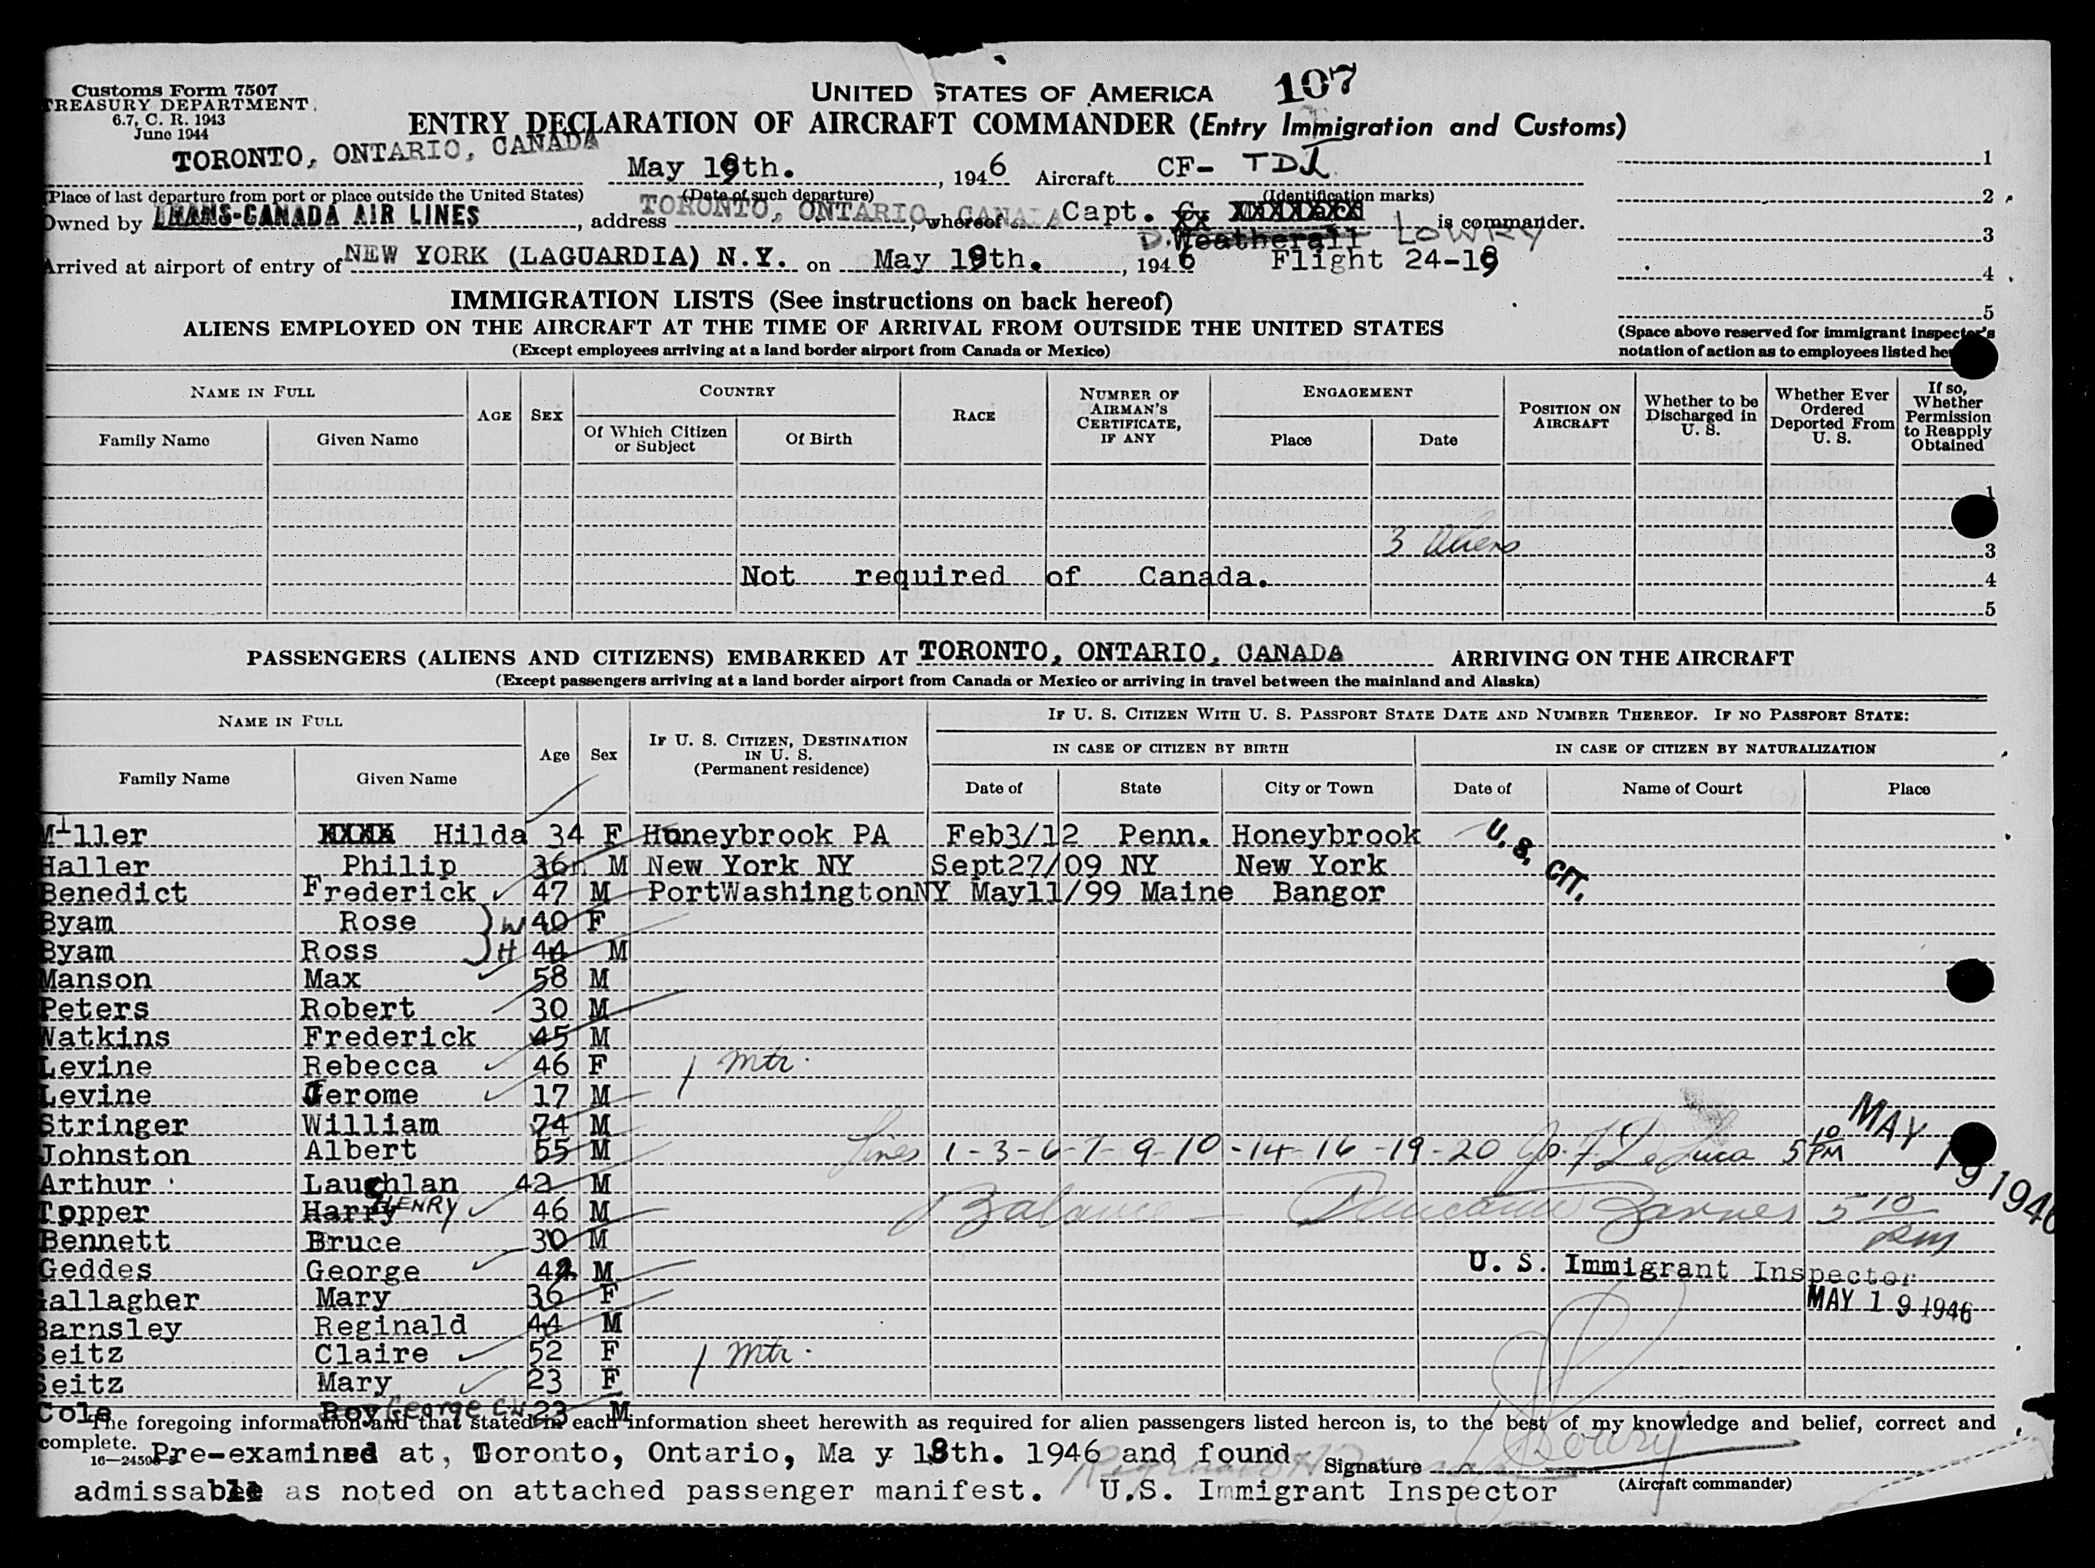 Customs Form 7507
TREASURY DEPARTMENT
6.7, C. R. 1943
June 1944
UNITED STATES OF AMERICA 107
ENTRY DECLARATION OF AIRCRAFT COMMANDER (Entry Immigration and Customs)
TORONTO, ONTARIO, CANADA May 19th. , 1946 Aircraft CF- TDL
(Place of last departure from port or place outside the United States) (Date of such departure) (Identification marks)
Owned by TRANS-CANADA AIR LINES , address TORONTO, ONTARIO, CANADA whereof Capt. D. Weatherall LOWRY is commander.
Arrived at airport of entry of NEW YORK (LAGUARDIA) N.Y. on May 19th. , 1946 Flight 24-19
1
2
3
4
5
(Space above reserved for immigrant inspector's
notation of action as to employees listed
IMMIGRATION LISTS (See instructions on back hereof)
ALIENS EMPLOYED ON THE AIRCRAFT AT THE TIME OF ARRIVAL FROM OUTSIDE THE UNITED STATES
(Except employees arriving at a land border airport from Canada or Mexico)
NAME IN FULL
Family Name Given Name
AGE SEX
COUNTRY
Of Which Citizen or Subject Of Birth
RACE
NUMBER OF AIRMAN'S CERTIFICATE, IF ANY
ENGAGEMENT
Place Date
POSITION ON AIRCRAFT
Whether to be Discharged in U. S.
Whether Ever Ordered Deported From U. S.
If so, Whether Permission to Reapply Obtained
1
3 Aliens 3
Not required of Canada. 4
5
PASSENGERS (ALIENS AND CITIZENS) EMBARKED AT TORONTO, ONTARIO, CANADA ARRIVING ON THE AIRCRAFT
(Except passengers arriving at a land border airport from Canada or Mexico or arriving in travel between the mainland and Alaska)
NAME IN FULL
Family Name Given Name
Age Sex
IF U. S. CITIZEN, DESTINATION IN U. S. (Permanent residence)
IF U. S. CITIZEN WITH U. S. PASSPORT STATE DATE AND NUMBER THEREOF. IF NO PASSPORT STATE:
IN CASE OF CITIZEN BY BIRTH IN CASE OF CITIZEN BY NATURALIZATION
Date of State City or Town Date of Name of Court Place
Miller XXXX Hilda 34 F Honeybrook PA Feb3/12 Penn. Honeybrook U. S. CIT.
Haller Philip 36 M New York NY Sept27/09 NY New York
Benedict Frederick 47 M PortWashingtonNY May11/99 Maine Bangor
Byam Rose W 40 F
Byam Ross H 44 M
Manson Max 58 M
Peters Robert 30 M
Watkins Frederick 45 M
Levine Rebecca 46 F 1 Mtr.
Levine Jerome 17 M
Stringer William 74 M
Johnston Albert 55 M Lines 1-3-6-7-9-10-14-16-19-20 5 10 PM MAY 19 1946
Arthur Lauchlan 42 M
Topper Harry HENRY 46 M Balance - Barnes 5 10 pm
Bennett Bruce 30 M
Geddes George 42 M U. S. Immigrant Inspector
Gallagher Mary 36 F MAY 19 1946
Barnsley Reginald 44 M
Seitz Claire 52 F 1 Mtr.
Seitz Mary 23 F
Cole Roy George 23 M
The foregoing information and that stated in each information sheet herewith as required for alien passengers listed hereon is, to the best of my knowledge and belief, correct and
complete.
Pre-examined at, Toronto, Ontario, Ma y 18th. 1946 and found Signature Lowry
admissable as noted on attached passenger manifest. U.S. Immigrant Inspector (Aircraft commander)